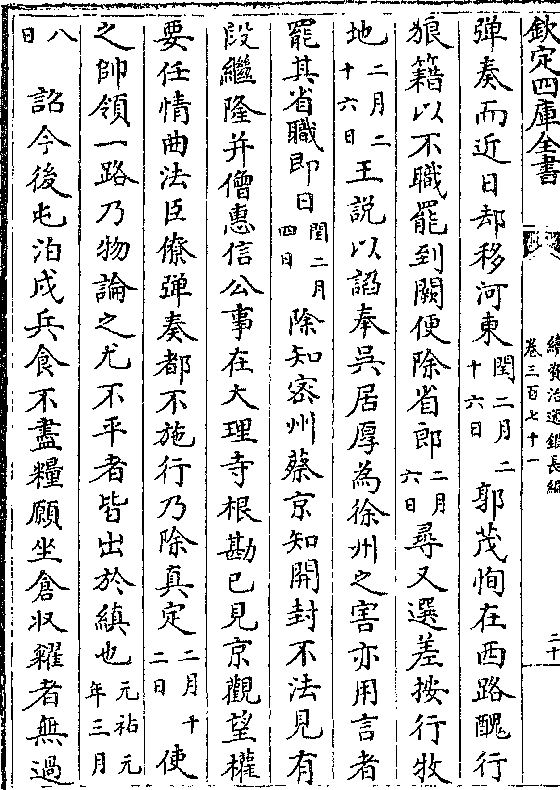 欽定四庫全書
續資治通鑑長編
卷三百七十一
二十
彈奏而近日却移河東閏二月二十六日郭茂恂在西路醜行
狼籍以不職罷到闕便除省郎二月六日尋又選差按行牧
地二月二十六日王說以謟奉吳居厚為徐州之害亦用言者
罷其省職即日閏二月四日除知密州蔡京知開封不法見有
段繼隆并僧惠信公事在大理寺根勘已見京觀望權
要任情曲法臣僚弹奏都不施行乃除真定二月十二日使
之帥領一路乃物論之尤不平者皆出於縝也元祐元年三月
八日 詔今後屯泊戍兵食不盡糧願坐倉収糴者無過